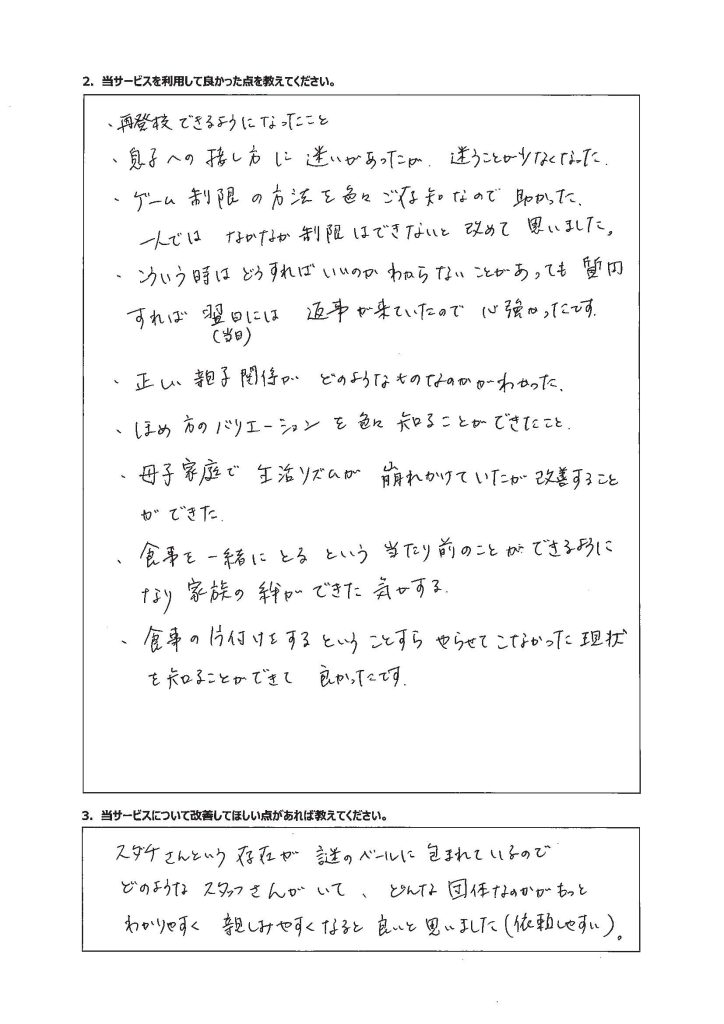 2. 当サービスを利用して良かった点を教えてください。
・再登校できるようになったこと
・息子への接し方に迷いがあったが、迷うことが少なくなった。
・ゲーム制限の方法を色々ご存知なので助かった。
一人ではなかなか制限はできないと改めて思いました。
・こういう時はどうすればいいのかわからないことがあっても質問
すれば翌日には返事が来ていたので心強かったです。
(当日)
・正しい親子関係がどのようなものなのかがわかった。
・ほめ方のバリエーションを色々知ることができたこと。
・母子家庭で生活リズムが崩れかけていたが改善すること
ができた。
・食事を一緒にとるという当たり前のことができるように
なり家族の絆ができた気がする。
・食事の片付けをするということすらやらせてこなかった現状
を知ることができて良かったです。
3. 当サービスについて改善してほしい点があれば教えてください。
スダチさんという存在が謎のベールに包まれているので
どのようなスタッフさんがいて、どんな団体なのかがもっと
わかりやすく親しみやすくなると良いと思いました(依頼しやすい)。